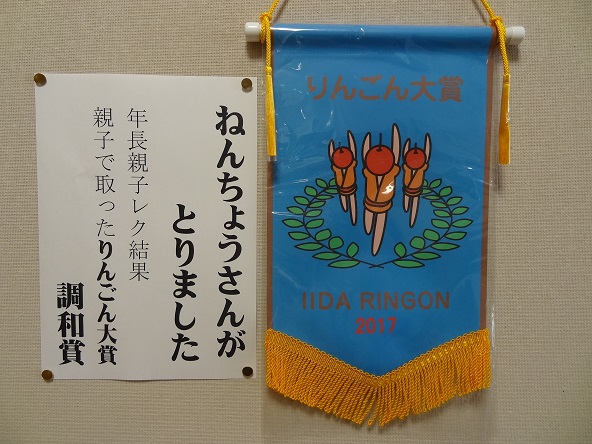 ねんちょうさんが
とりました
年長親子レク結果
親子で取ったりんごん大賞
調和賞
りんごん大賞
IIDA RINGON
2017